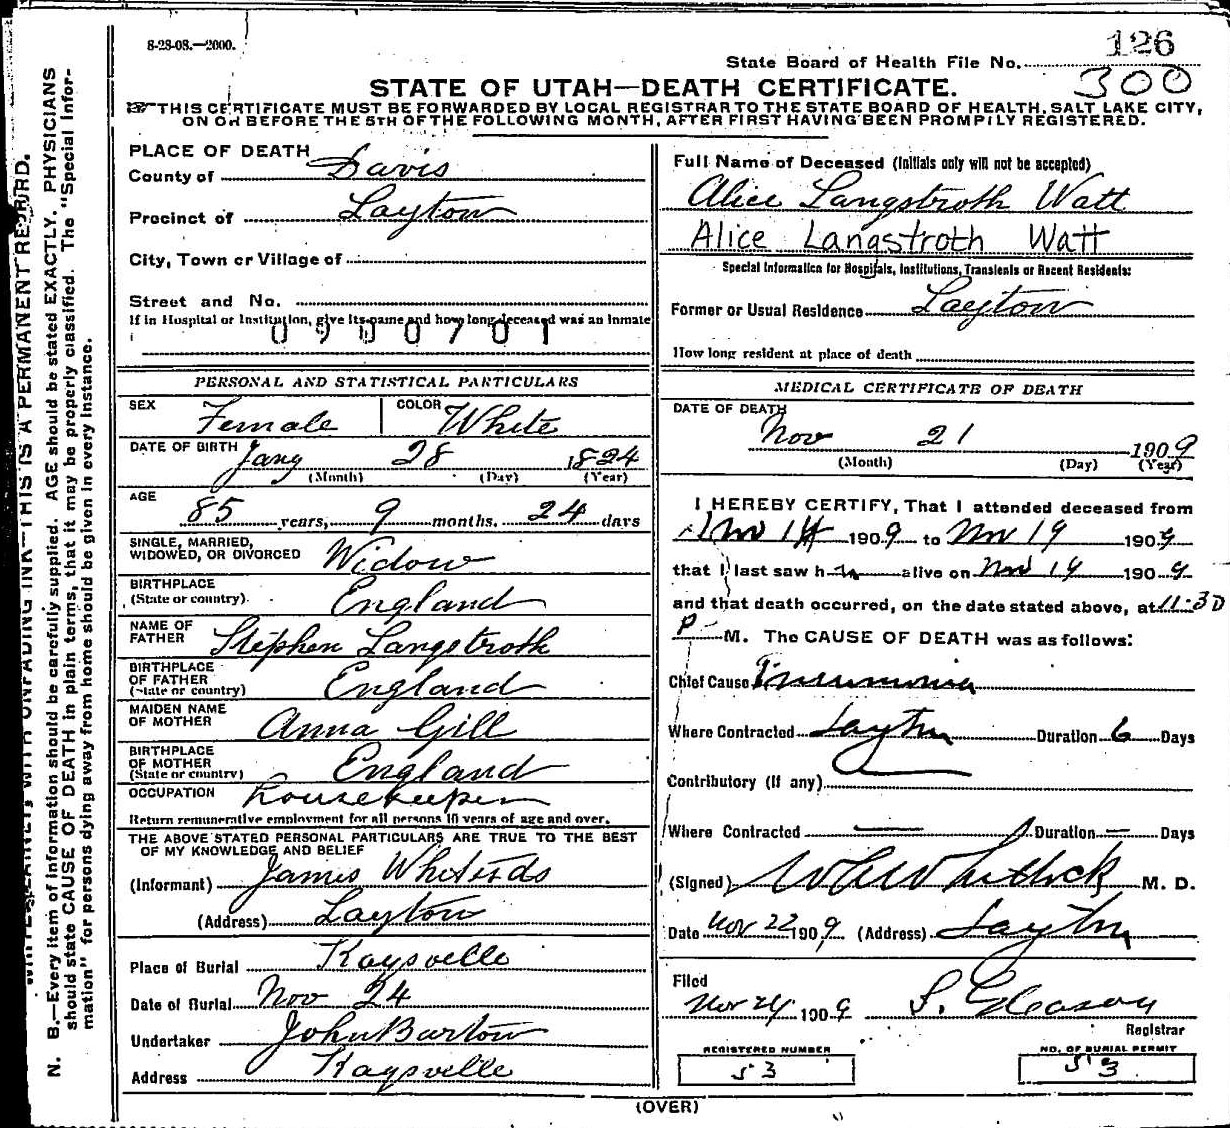 8-28-08.—2000.
126
State Board of Health File No.
300
STATE OF UTAH—DEATH CERTIFICATE.
THIS CERTIFICATE MUST BE FORWARDED BY LOCAL REGISTRAR TO THE STATE BOARD OF HEALTH, SALT LAKE CITY,
ON OR BEFORE THE 5TH OF THE FOLLOWING MONTH, AFTER FIRST HAVING BEEN PROMPILY REGISTERED.
PLACE OF DEATH
County of Davis
Precinct of Layton
City, Town or Village of
Street and No.
If in Hospital or Institution, give its name and how long deceased was an inmate
0900701
PERSONAL AND STATISTICAL PARTICULARS
SEX Female COLOR White
DATE OF BIRTH Jany 28 1824
(Month) (Day) (Year)
AGE
85 years, 9 months. 24 days
SINGLE, MARRIED,
WIDOWED, OR DIVORCED Widow
BIRTHPLACE
(State or country). England
NAME OF
FATHER Stephen Langstroth
BIRTHPLACE
OF FATHER
(State or country) England
MAIDEN NAME
OF MOTHER Anna Gill
BIRTHPLACE
OF MOTHER
(State or country) England
OCCUPATION housekeeper
Return remunerative employment for all persons 10 years of age and over.
THE ABOVE STATED PERSONAL PARTICULARS ARE TRUE TO THE BEST
OF MY KNOWLEDGE AND BELIEF
(Informant) James
(Address) Layton
Place of Burial Kaysville
Date of Burial Nov 24
Undertaker John Barton
Address Kaysville
Full Name of Deceased (Initials only will not be accepted)
Alice Langstroth Watt
Alice Langstroth Watt
Special Information for Hospitals, Institutions, Transients or Recent Residents:
Former or Usual Residence Layton
How long resident at place of death
MEDICAL CERTIFICATE OF DEATH
DATE OF DEATH
Nov 21 1909
(Month) (Day) (Year)
I HEREBY CERTIFY, That I attended deceased from
Nov 14 1909 to Nov 19 1909
that I last saw h alive on Nov 19 1909
and that death occurred, on the date stated above, at 11-30
P M. The CAUSE OF DEATH was as follows:
Chief Cause Pneumonia
Where Contracted Layton Duration 6 Days
Contributory (If any)
Where Contracted — Duration — Days
(Signed) Whitlock M. D.
Date Nov 22 1909 (Address) Layton
Filed
Nov 24 1909 S. Gleason
Registrar
REGISTERED NUMBER
53
NO. OF BURIAL PERMIT
53
(OVER)
THIS IS A PERMANENT RECORD.
N. B.—Every item of information should be carefully supplied. AGE should be stated EXACTLY. PHYSICIANS
should state CAUSE OF DEATH in plain terms, that it may be properly classified. The "Special Infor-
mation" for persons dying away from home should be given in every instance.